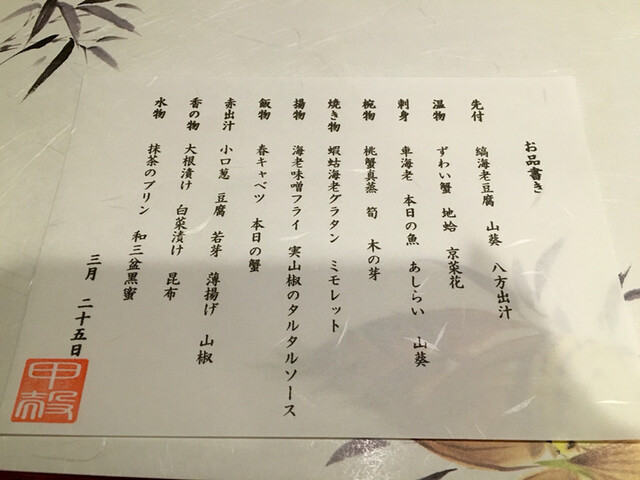 お品書き
先付 縞海老豆腐 山葵 八方出汁
温物 ずわい蟹 地蛤 京菜花
刺身 車海老 本日の魚 あしらい 山葵
椀物 桃蟹真蒸 筍 木の芽
焼き物 蝦蛄海老グラタン ミモレット
揚物 海老味噌フライ 実山椒のタルタルソース
飯物 春キャベツ 本日の蟹
赤出汁 小口葱 豆腐 若芽 薄揚げ 山椒
香の物 大根漬け 白菜漬け 昆布
水物 抹茶のプリン 和三盆黒蜜
三月 二十五日
甲殻